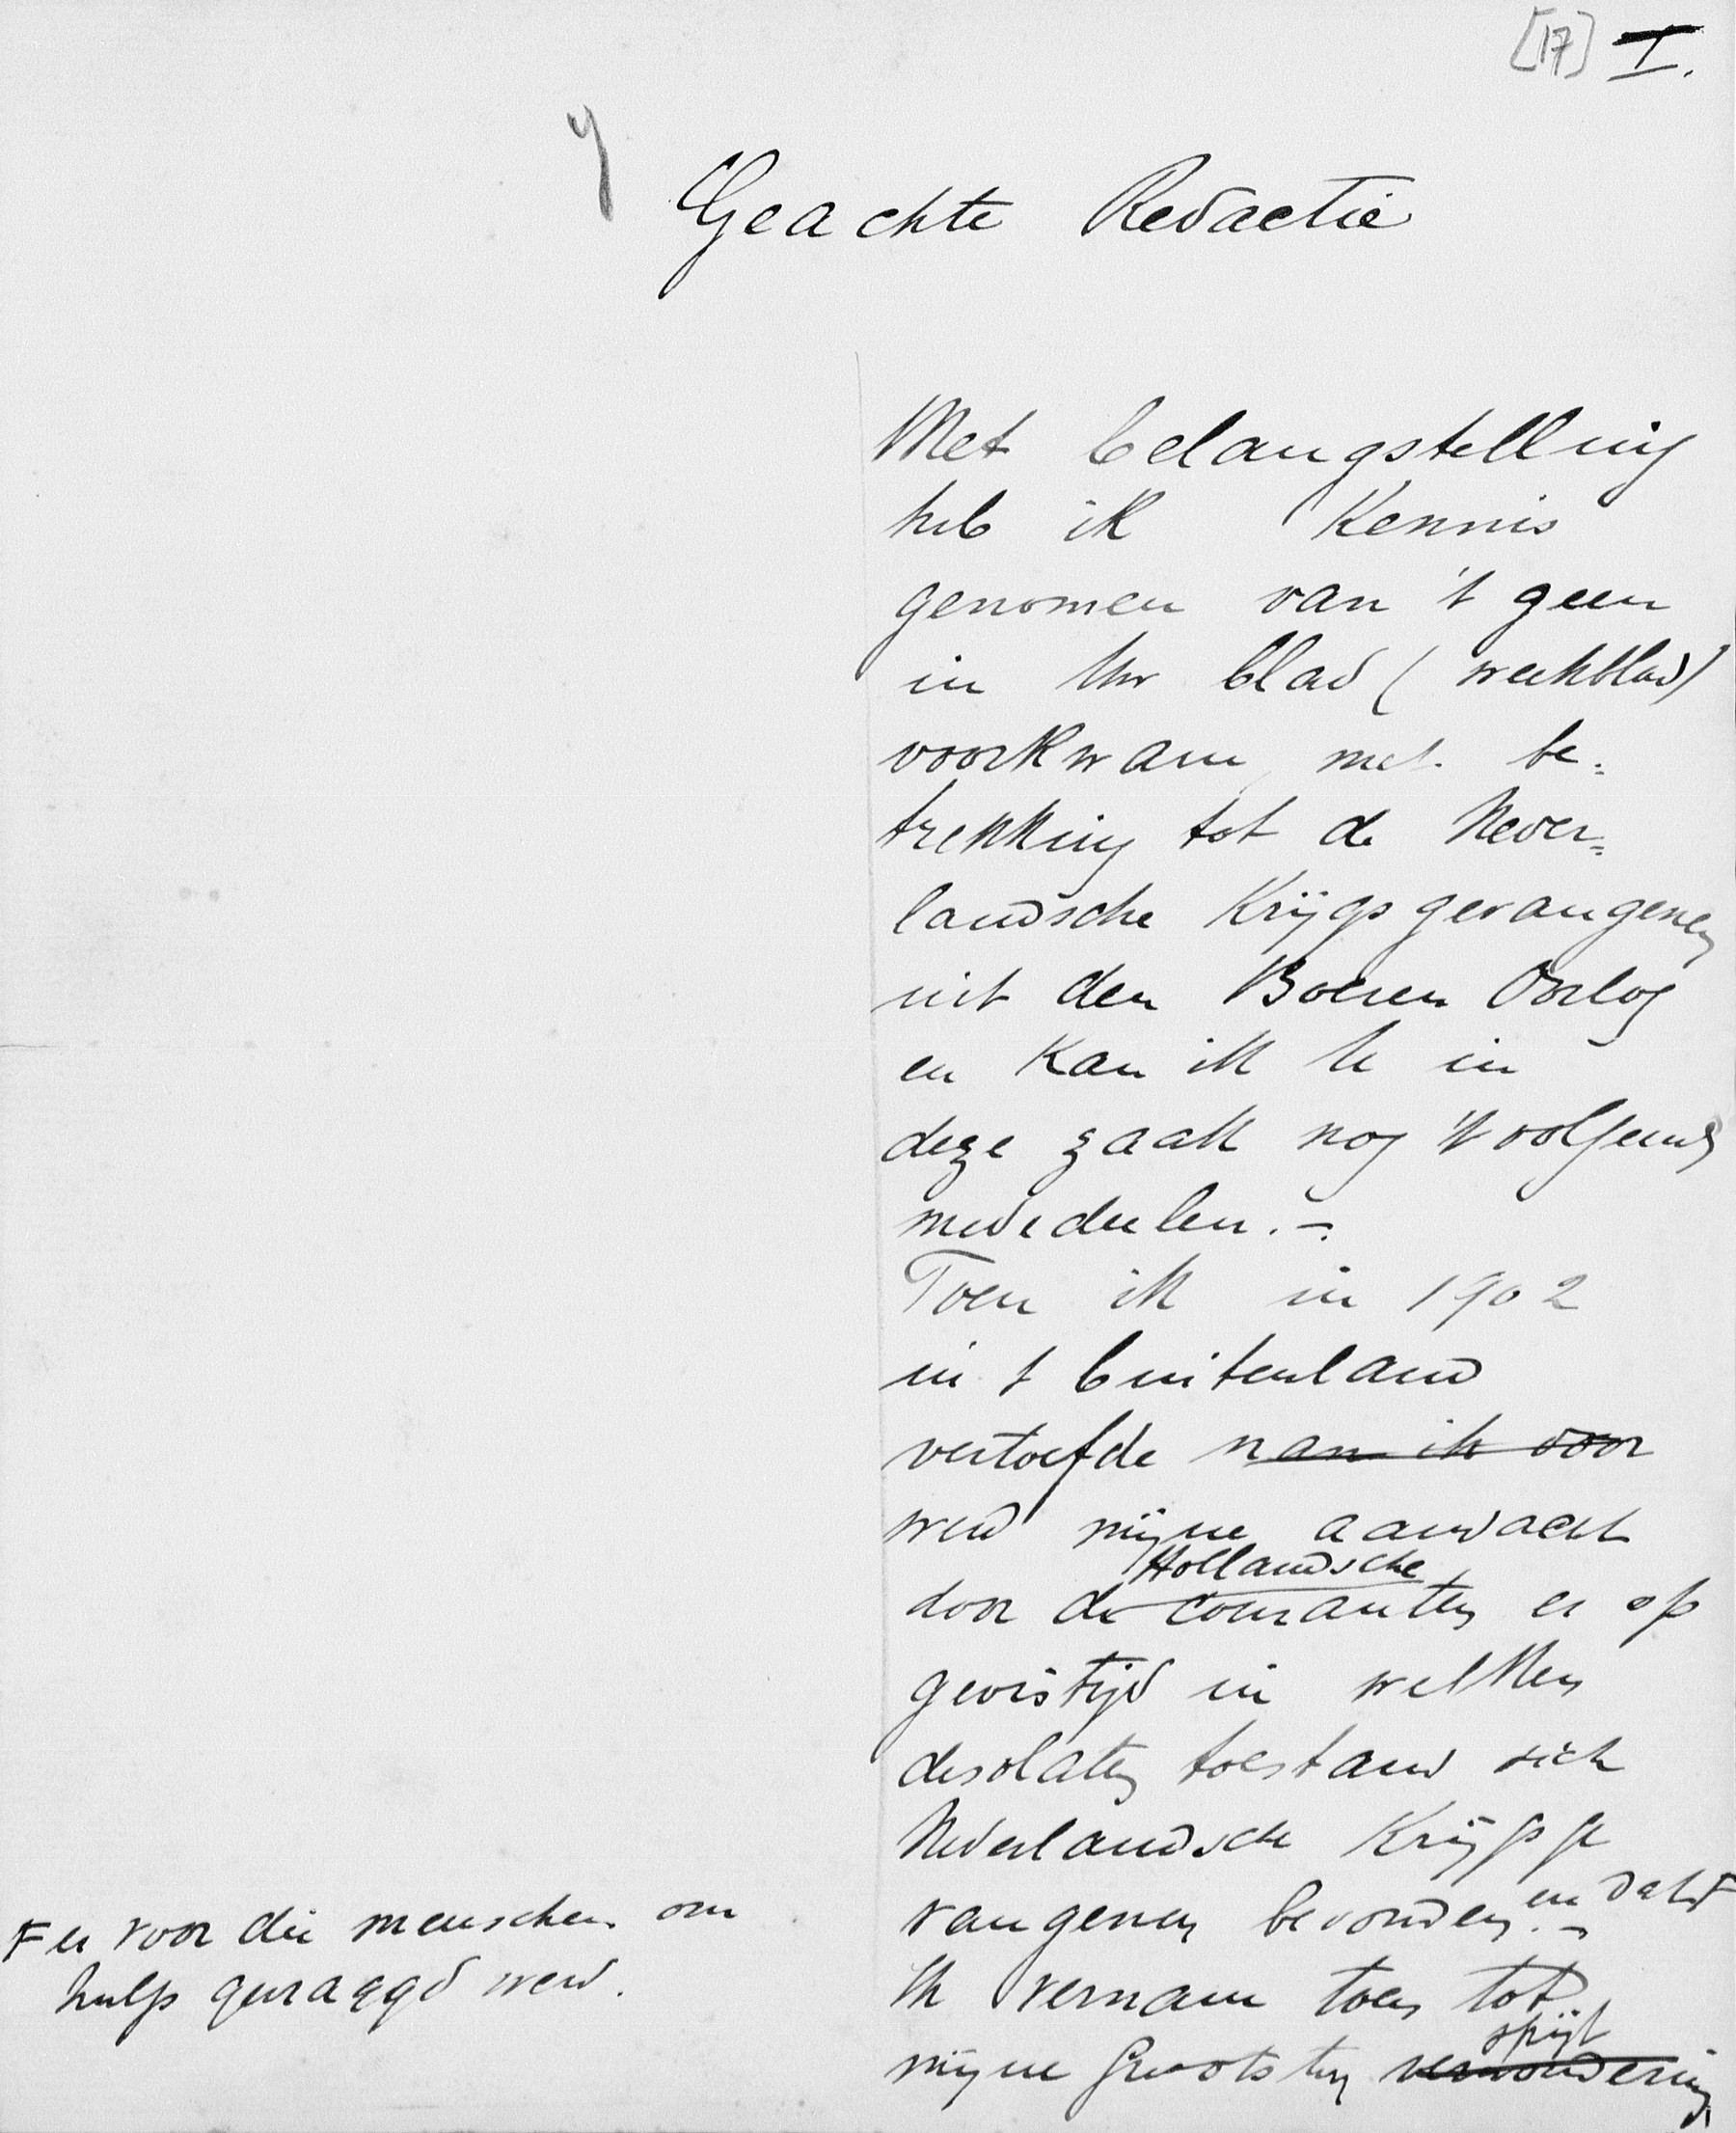 [17] I.
Geachte Redactie
Met belangstelling
heb ik Kennis
genomen van 't geen
in Uw blad (weekblad)
voorkwam met be=
trekking tot de Neder=
landsche Krijgsgevangenen
uit den Boeren Oorlog
en Kan ik U in
deze zaak nog 't volgende
mededeelen. -.
Toen ik in 1902
in 't buitenland
vertoefde nam ik voor
werd mijne aandacht
Hollandsche
door de couranten er op
gevestigd in welken
desolaten toestand zich
Nederlandsche Krijgsge
vangenen bevonden. - en dat F
F er voor die menschen om
hulp gevraagd werd.
Ik vernam toen tot
spijt
mijne Grootsten verwondering